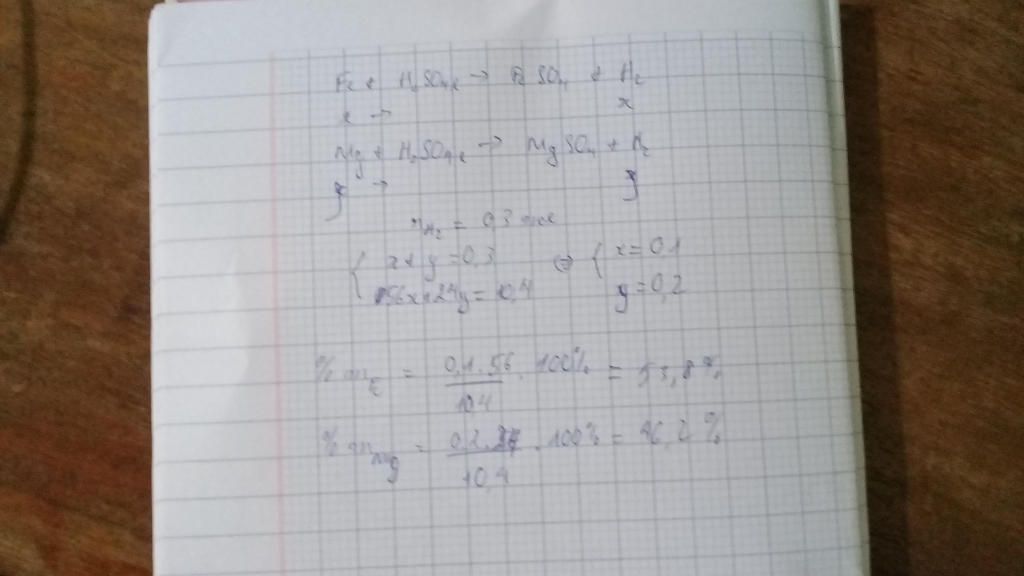 Fe + H2SO4 → FeSO4 + H2
x → x
Mg + H2SO4 → MgSO4 + H2
y → y
nH2 = 0,3 mol
{ x + y = 0,3 ⇔ { x = 0,1
56x + 24y = 10,4 y = 0,2
% mFe = 0,1 . 56 / 10,4 . 100% = 53,8%
% mMg = 0,2 . 24 / 10,4 . 100% = 46,2 %